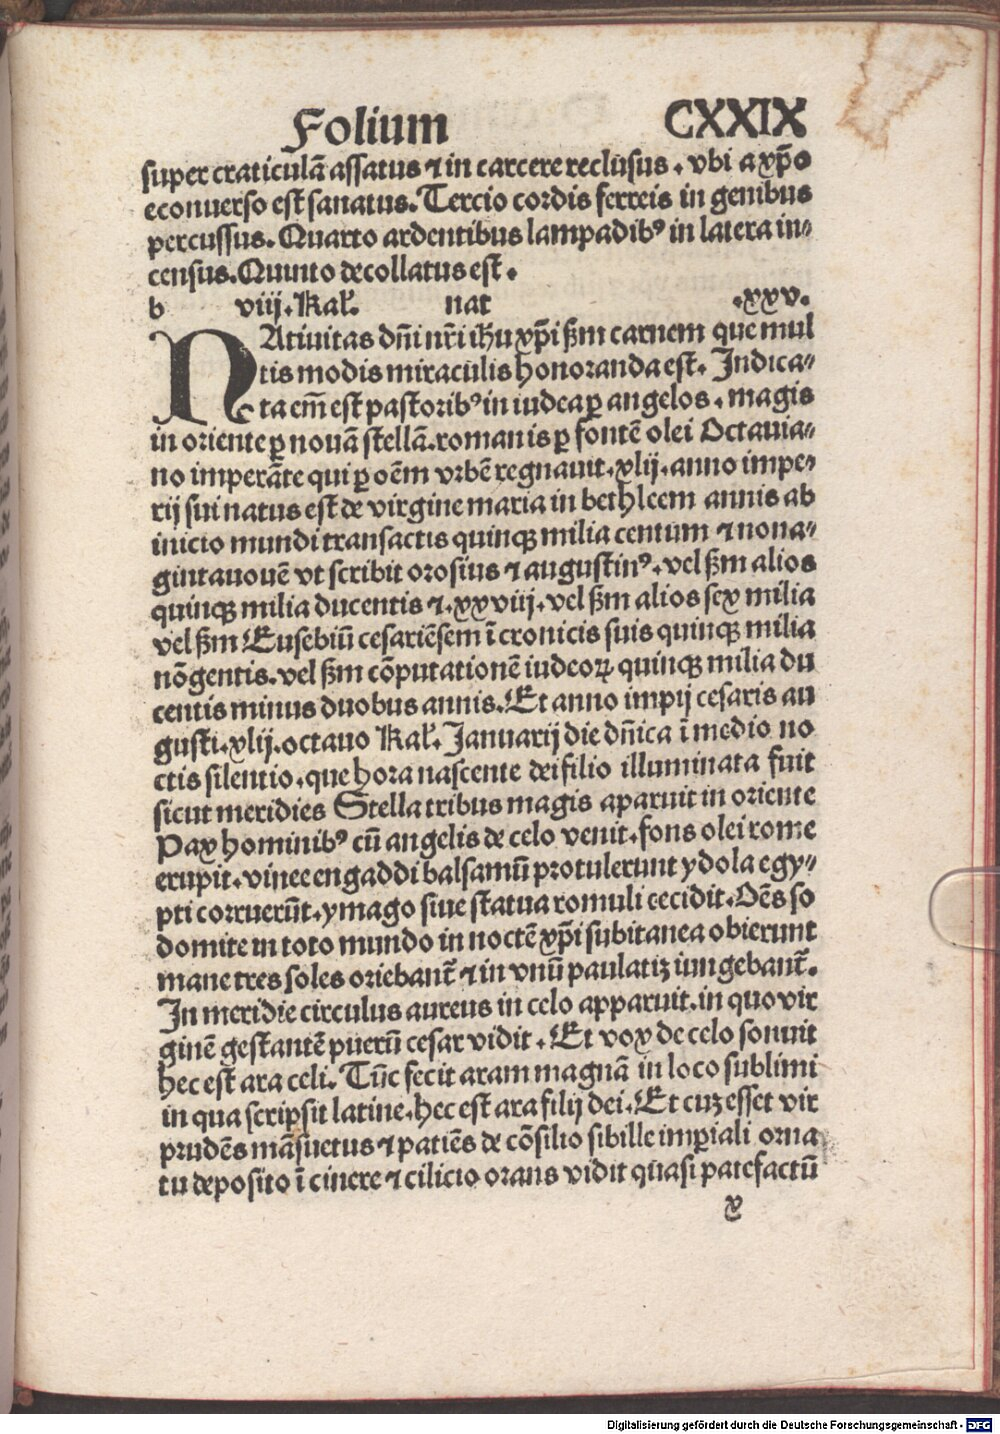 Folium CXXIX
super craticulã assatus ⁊ in carcere reclusus . vbi a xp̃o
econuerso est sanatus. Tercio cordis ferreis in genibus
percussus. Quarto ardentibus lampadibꝰ in latera in⸗
census. Quinto decollatus est .
b viij. Kal̃. nat .xxv.
NAtiuitas dñi nr̃i ihu xp̃i ẜm carnem que mul
tis modis miraculis honoranda est. Indica⸗
ta em̃ est pastoribꝰ in iudea ꝑ angelos . magis
in oriente ꝑ nouã stellã. romanis ꝑ fontẽ olei Octauia⸗
no imperãte qui ꝑ oẽm vrbẽ regnauit. xlij. anno impe⸗
rij sui natus est de virgine maria in bethleem annis ab
inicio mundi transactis quinqꝫ milia centum ⁊ nona⸗
gintanouẽ vt scribit orosius ⁊ augustinꝰ. vel ẜm alios
quinqꝫ milia ducentis ⁊. xxviij. vel ẜm alios sex milia
vel ẜm Eusebiũ cesariẽsem ĩ cronicis suis quinqꝫ milia
nõgentis. vel ẜm cõputationẽ iudeoꝝ quinqꝫ milia du
centis minus duobus annis. Et anno impij cesaris au
gusti. xlij. octauo Kal̃. Januarij die dñica ĩ medio no
ctis silentio. que hora nascente dei filio illuminata fuit
sicut meridies Stella tribus magis aparuit in oriente
Pax hominibꝰ cũ angelis de celo venit. fons olei rome
erupit. vinee engaddi balsamũ protulerunt ydola egy⸗
pti corruerũt. ymago siue statua romuli cecidit. Oẽs so
domite in toto mundo in noctẽ xp̃i subitanea obierunt
mane tres soles oriebant̃ ⁊ in vnũ paulatiꝫ iungebant̃.
In meridie circulus aureus in celo apparuit. in quo vir
ginẽ gestantẽ puerũ cesar vidit . Et vox de celo sonuit
hec est ara celi. Tũc fecit aram magnã in loco sublimi
in qua scripsit latine. hec est ara filij dei. Et cuꝫ esset vir
prudẽs mãsuetus ⁊ patiẽs de cõsilio sibille imꝑiali orna
tu deposito ĩ cinere ⁊ cilicio orans vidit quasi patefactũ
x
Digitalisierung gefördert durch die Deutsche Forschungsgemeinschaft - DFG